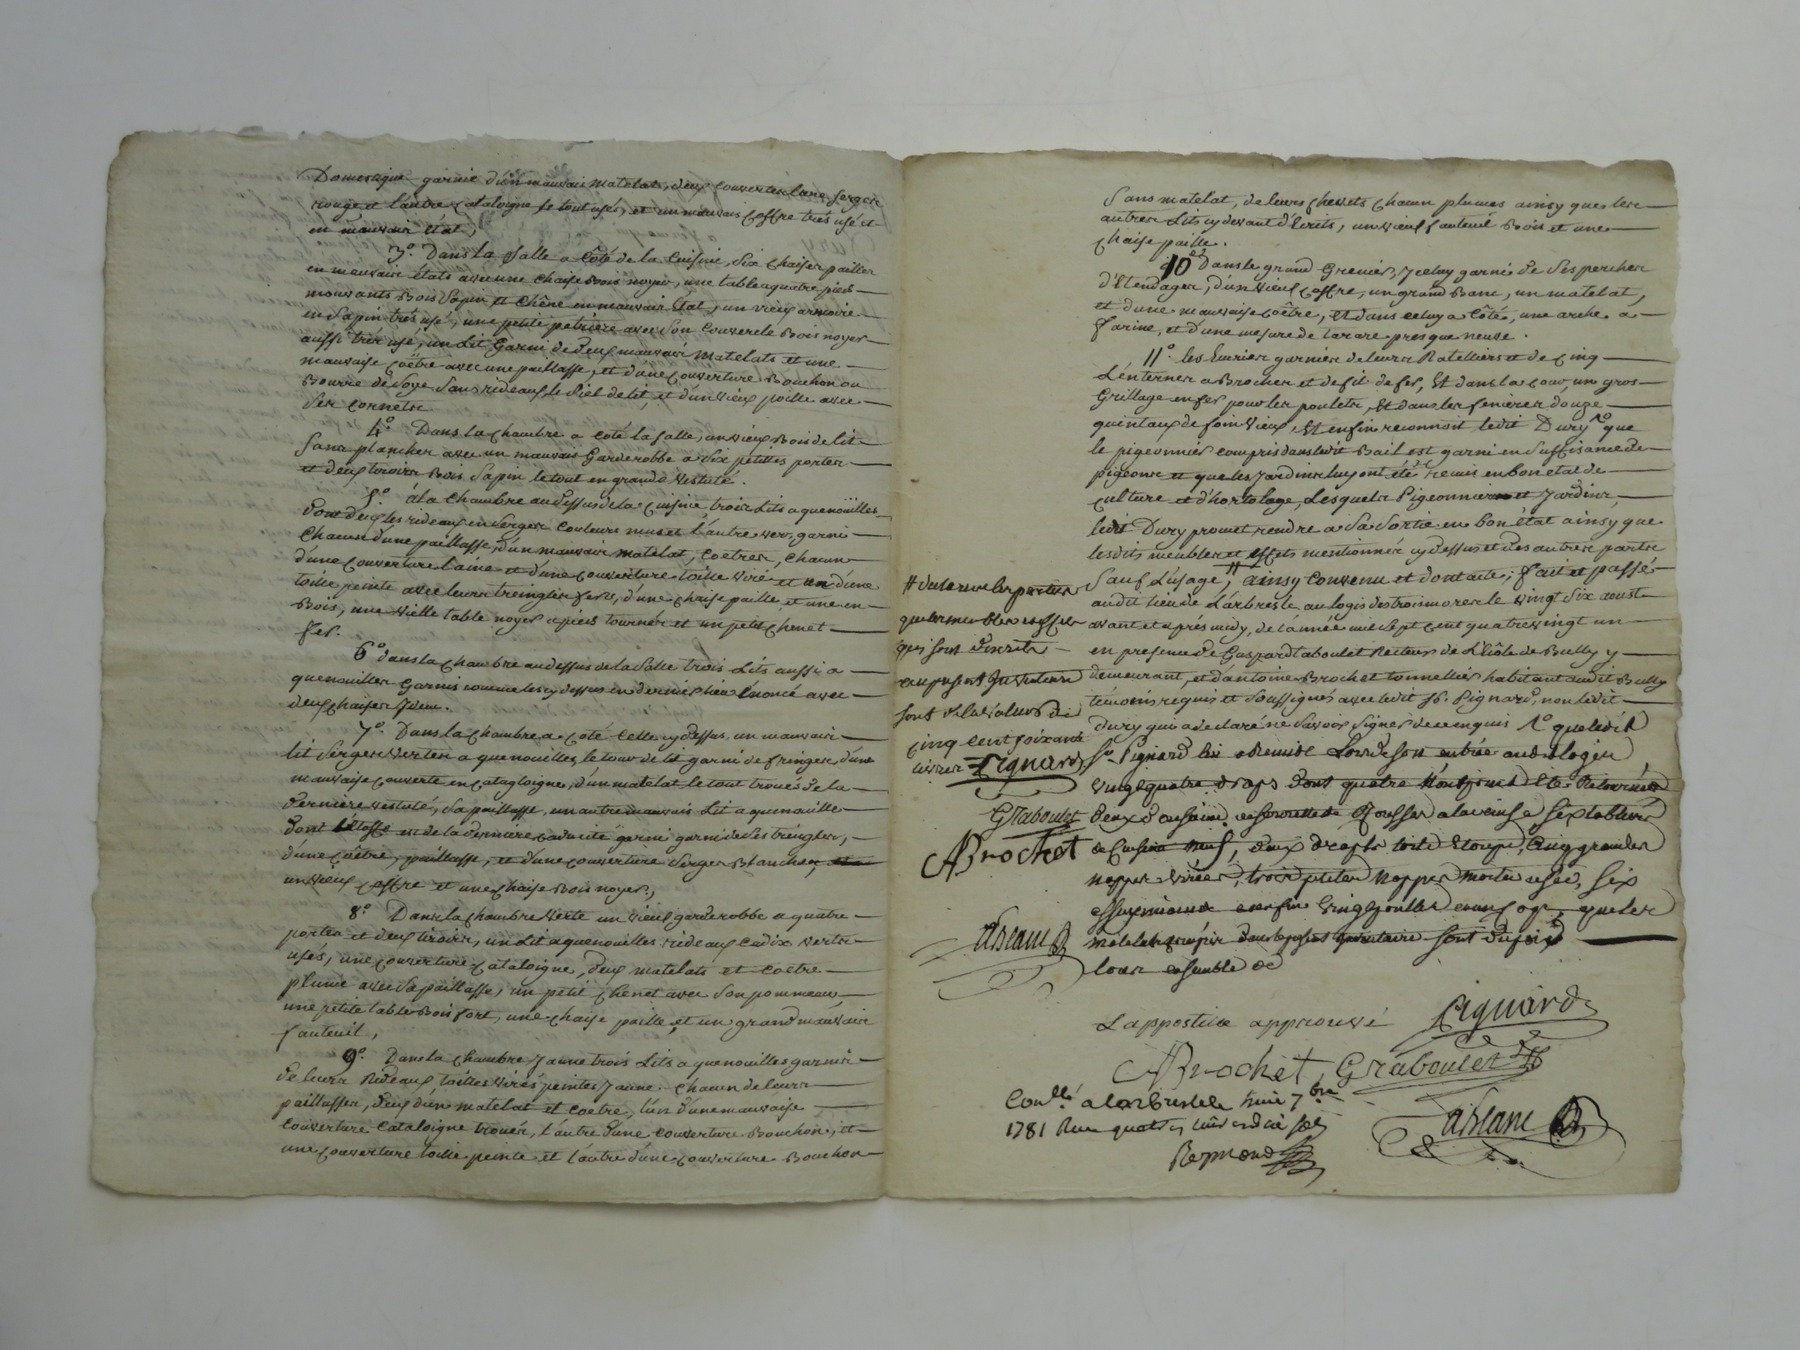 Domestique garnie d'un mauvais matelat, deux couvertes laine serger
rouge et l'autre cataloigne le tout usés, et un mauvais coffre très usé et
en mauvais état,
3.° Dans la Salle a Côté de la Cuisine, six chaises pailler
en mauvais états avec une chaise Bois noyer, une table a quatre pieds
mouvants Bois Sapin et Chêne en mauvais état, un vieux armoire
en Sapin très usé, une petite petrière avec son couvercle Bois noyer
aussi très usé, un Lit Garni de deux mauvais matelats et une
mauvaise coëtre avec une paillasse, et d'une couverture Bouchon ou
Bourre de Soye sans rideaux, le Ciel de lit, et d'un vieux poille avec
ses cornets
4.° Dans la chambre a coté la salle, un vieux Bois de lit
sans plancher avec un mauvais Garderobbe a six petittes portes
et deux tiroirs Bois Sapin le tout en grande vestuté.
5.° à la Chambre au dessus de la cuisine, trois Lits a quenouilles
dont deux les rideaux en Serger couleurs et l'autre vers, garni
Chacun d'une paillasse, d'un mauvais matelat, coetrer, chacun
d'une couverture laine et d'une couverture toille viré et d'une
toille peinte avec leurs treingles fers, d'une chaise paille et une en
Bois, une vielle table noyer a pieds tournés et un petit chenet
fer.
6° dans la chambre au dessus de la Salle trois Lits aussi a
quenouilles Garnis comme les cy dessus en dernier lieu énoncé avec
deux chaises Idem.
7.° Dans la chambre a coté celle cy dessus un mauvais
lit Serger verter a quenouilles, le tour de lit garni de fringer, d'une
mauvaise couverte en catagloigne, d'un matelat le tout troués de la
dernière vestuté, Sa paillasse, un autre mauvais Lit a quenouille
dont létoffe en de la dernière caducité garni garni de ses treingler,
d'une coëtre, paillasse, et d'une couverture Serger Blancher,
un vieux coffre et une chaise Bois noyer,
8.° Dans la chambre verte un vieux garderobbe a quatre
portes et deux tiroirs, un Lit a quenouilles rideaux Cadix verts
usés, une couverture catalogne, deux matelats et coetre
plume avec Sa paillasse, un petit chenet avec son pommeau,
une petite table Bois fort, une chaise paille, et un grand mauvais
fauteuil,
9.° Dans la chambre Jaune trois Lits a quenouilles garnis
de leurs Rideaux toilles virés peintes Jaune. chacun de leurs
paillasses, deux d'un matelat et coetre, l'un d'une mauvaise
couverture Catalogne trouée, l'autre d'une couverture Bouchon, et
une couverture toille peinte et l'autre d'une couverture Bouchon
Sans matelat, de leurs chevets chacun plumes ainsy que les
autres Lits cy devant d'Ecrits, un vieux fauteuil Bois et une
chaise paille.
10° Dans le grand Grenier, Iceluy garni de ses percher
d'Etendager, d'un vieux coffre, un grand Banc, un matelat,
et d'une mauvaise coëtre, Et dans celuy a Coté, une arche a
farine, et d'une mesure de tarare presque neuve.
11.° les Ecuries garnies de leurs Ratelliers et de cinq
Lenternes a Brocher et de fil de fer, Et dans la cour, un gros
Grillage en fer pour les poulets, Et dans les fenières douze
quintaux de foin vieux, Et enfin reconnoit ledit Dury 1° que
le pigeonnier compris dans ledit Bail est garni en Suffisance de
pigeons et que les Jardins luy ont été remis en bon etat de
culture et d'hortolage, Lesquels Pigeonnier et Jardins,
ledit Dury promet rendre a Sa Sortie en bon état ainsy que
les dits meubles et effets mentionnés cy dessus et des autres parts
Sauf L'usage, # ainsy convenu et dont acte; fait et passé
audit lieu de L'arbresle au logis des trois mores le vingt Six aoust
avant et après midy, de l'année mil sept cent quatre vingt un
en presence de Gaspard Graboulet Recteur de L'Ecole de Bully y
demeurant, et d'antoine Brochet tonnellier habitant audit Bully
témoins requis et Soussignés avec ledit Sr. Pignard, non ledit
Dury qui a declaré ne Savoir Signer de ce enquis 1° que ledit
Sr. Pignard lui a remis Lors de son entrée audit logis
vingt quatre draps dont quatre Etés Retournés
deux douzaine de
de cuisine neuf, deux draps toile Etoupe, Cinq grandes
nappes virées, trois petites nappes usée, six
essuymains enfin
matelats
Lous ensemble de
# declarant les parties
que les meubles et effets
qui sont d'écrits
au present Inventaire
sont de la valeur de
cinq cent soixante
livres Pignard
Graboulet
ABrochet
aBlanc
L'appostille approuvé Pignard
ABrochet, Graboulet
aBlanc
Con.llé a Larbresle huit 7bre
1781 Reçu quatorze
Reymond